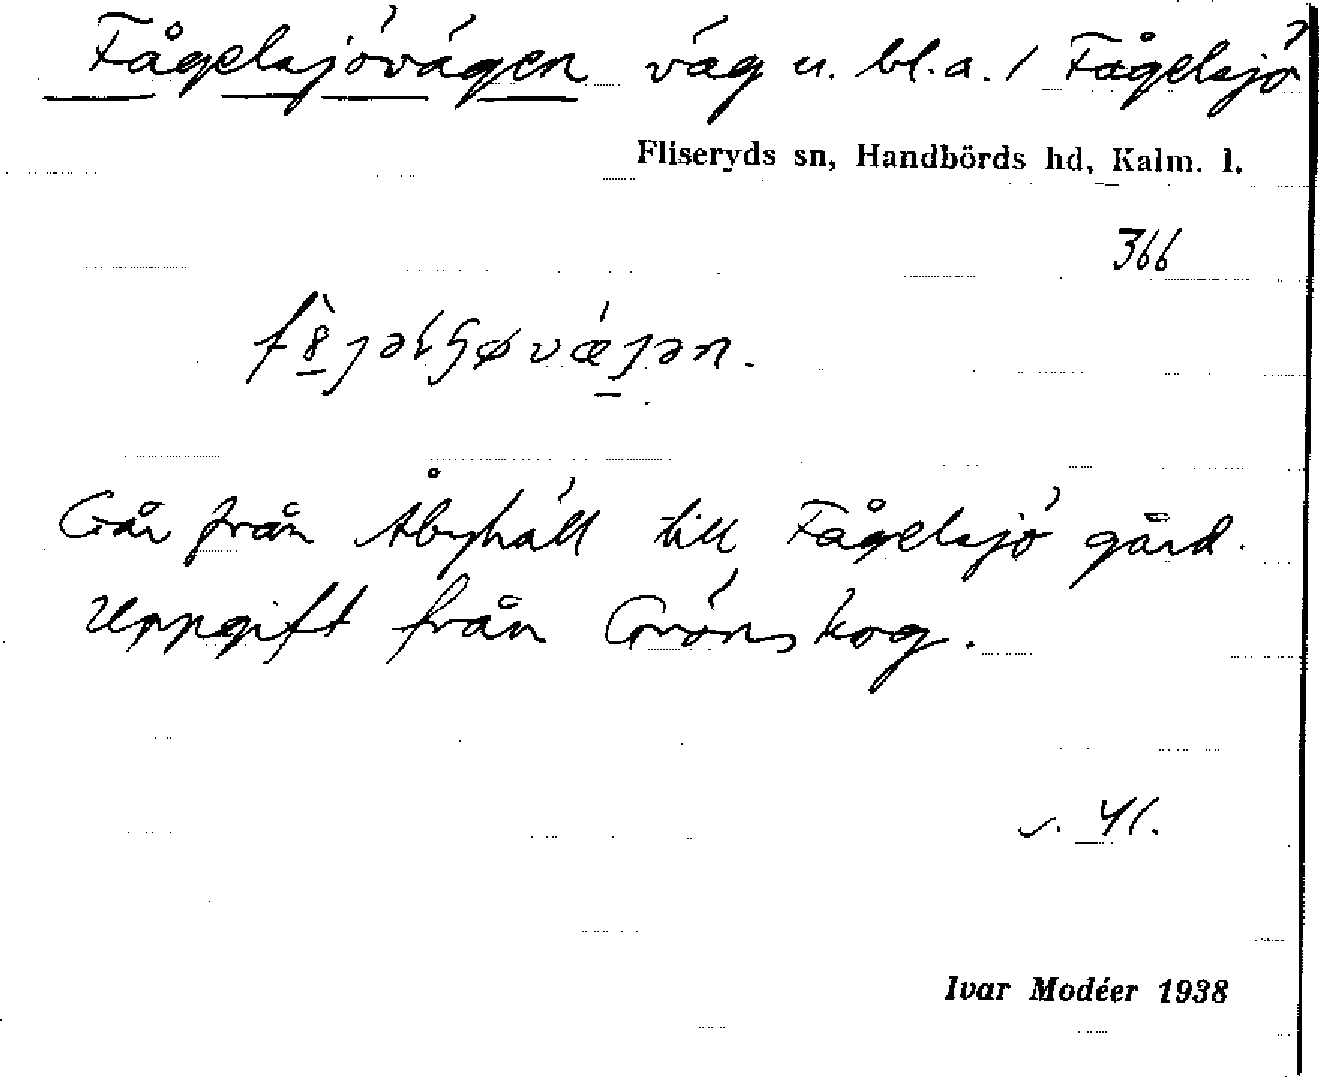 Fågelsjövägen väg u. bl. a. / Fågelsjö
Fliseryds sn, Handbörds hd, Kalm. l.
366
Går från Åbyhäll till Fågelsjö gård.
Uppgift från Grönskog.
s. 41.
Ivar Modéer 1938